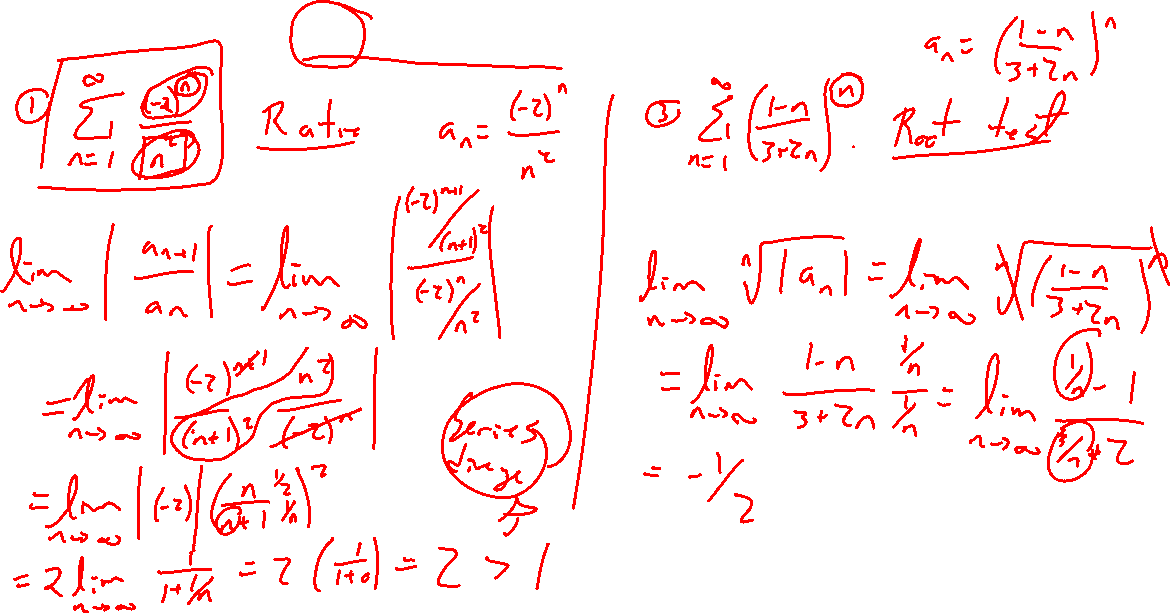 ① \sum_{n=1}^{\infty} \frac{(-2)^n}{n^2} Ratio a_n = \frac{(-2)^n}{n^2}
\lim_{n→∞} \left| \frac{a_{n+1}}{a_n} \right| = \lim_{n→∞} \left| \frac{(-2)^{n+1}/(n+1)^2}{(-2)^n/n^2} \right|
= \lim_{n→∞} \left| \frac{(-2)^{n+1}}{(n+1)^2} \frac{n^2}{(-2)^n} \right|
= \lim_{n→∞} |(-2)| \left( \frac{n}{n+1} \frac{1/n}{1/n} \right)^2
= 2 \lim_{n→∞} \frac{1}{1+1/n} = 2 \left( \frac{1}{1+0} \right) = 2 > 1
Series
diverges
a_n = \left( \frac{1-n}{3+2n} \right)^n
③ \sum_{n=1}^{∞} \left( \frac{1-n}{3+2n} \right)^n . Root test
\lim_{n→∞} \sqrt[n]{|a_n|} = \lim_{n→∞} \sqrt[n]{\left( \frac{1-n}{3+2n} \right)^n}
= \lim_{n→∞} \frac{1-n}{3+2n} \frac{1/n}{1/n} = \lim_{n→∞} \frac{1/n - 1}{3/n + 2}
= -1/2